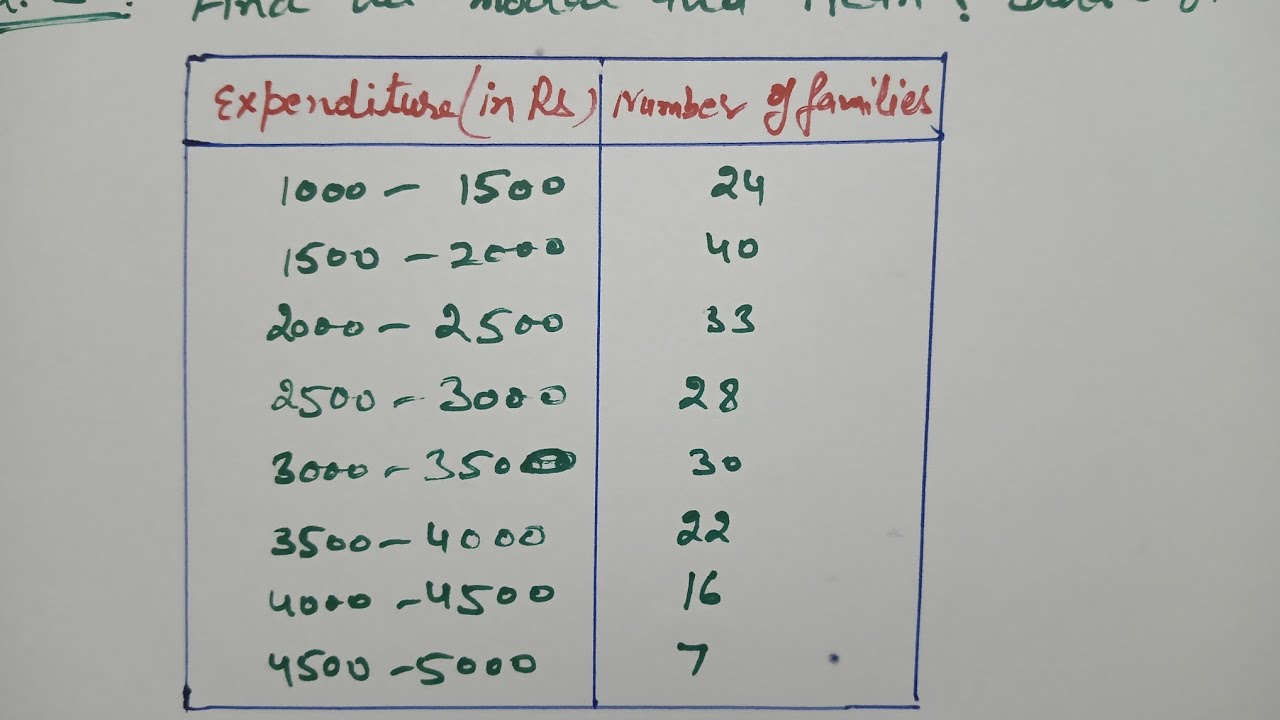 Find the modal and Mean :
Expenditure (in Rs) Number of families
1000 - 1500 24
1500 - 2000 40
2000 - 2500 33
2500 - 3000 28
3000 - 3500 30
3500 - 4000 22
4000 - 4500 16
4500 - 5000 7